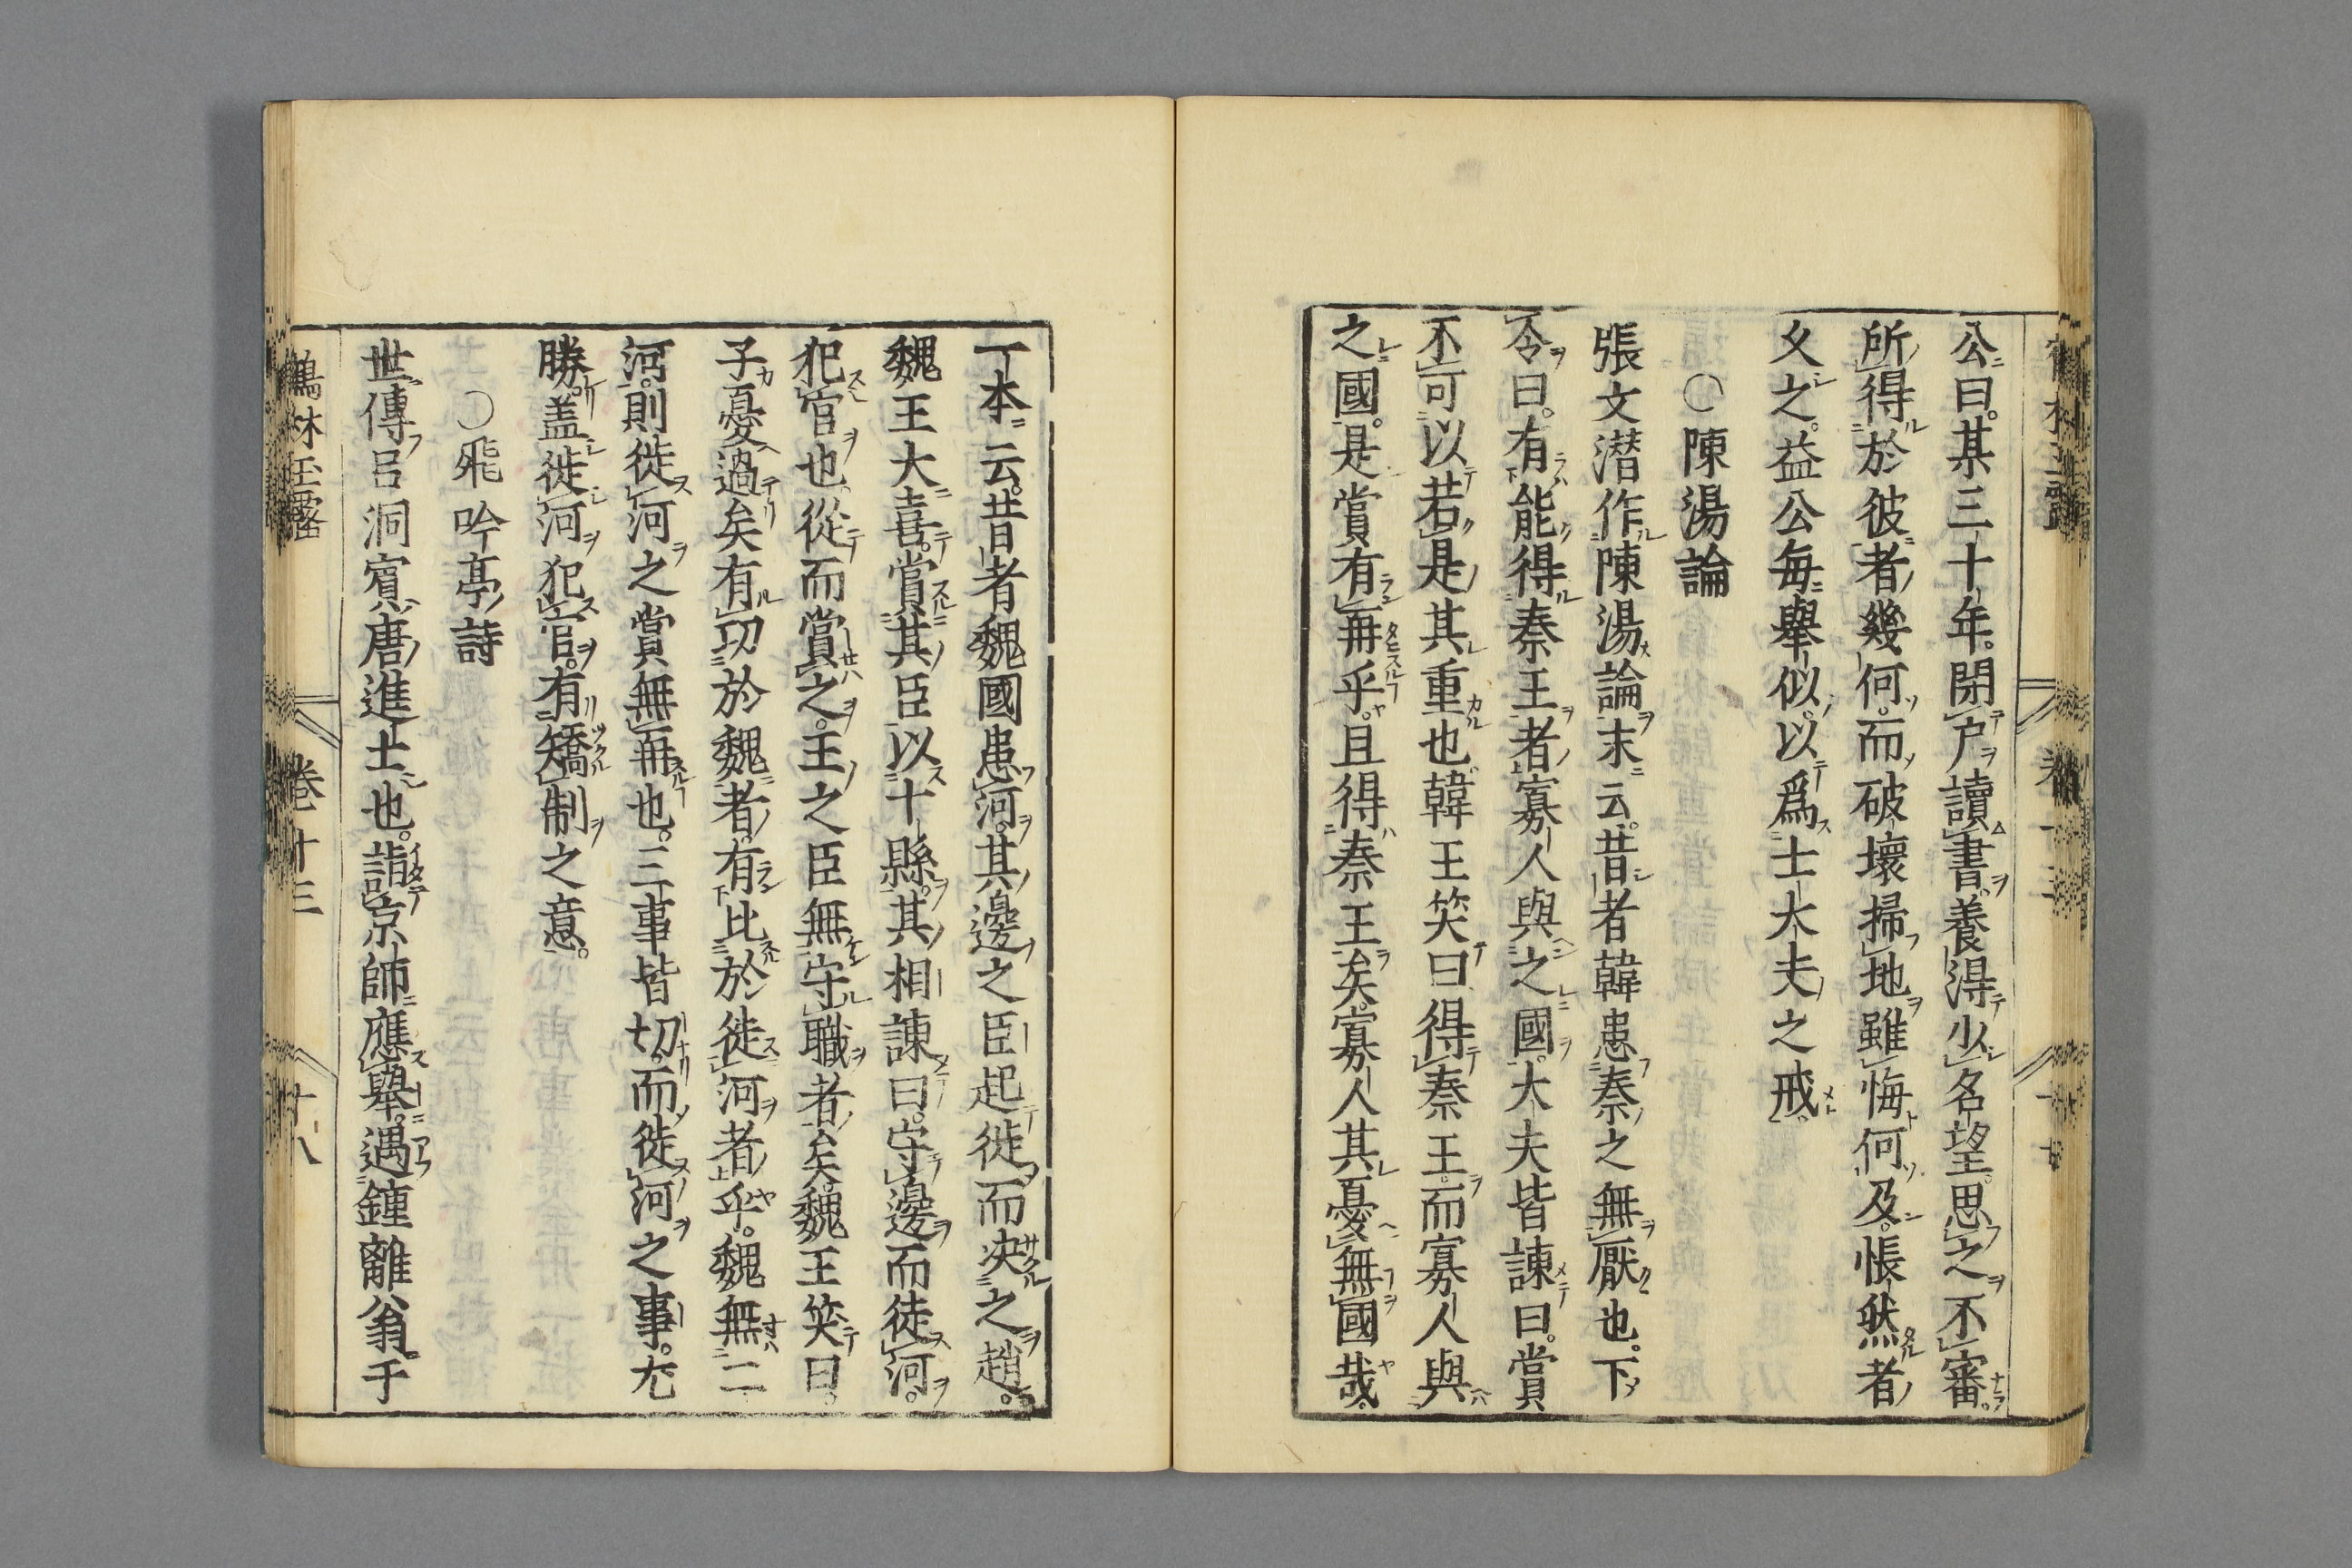 公曰。某三十年。閉户讀書。養得少名望。思之不審。
所得於彼者幾何。而破壞掃地。雖悔何及。悵然者
久之。益公每舉似。以爲士大夫之戒。
○陳湯論
張文潜作陳湯論末云。昔者韓患秦之無厭也。下
令曰。有能得秦王者。寡人與之國。大夫皆諫曰。賞
不可以若是其重也。韓王笑曰。得秦王。而寡人與
之國。是賞有再乎。且得秦王矣。寡人其憂無國哉。
丁本云。昔者魏國患河。其邊之臣起徙而决之趙。
魏王大喜。賞其臣以十縣。其相諫曰。守邊而徒河。
犯官也。從而賞之。王之臣無守職者矣。魏王笑曰。
子憂過矣。有功於魏者。有比於徙河者乎。魏無二
河。則徙河之賞無再也。二事皆切。而徙河之事。尤
勝。盖徙河犯官。有矯制之意。
○飛吟亭詩
世傳呂洞賓。唐進士也。詣京師應舉。遇鍾離翁于
鶴林玉露 卷十三 十八